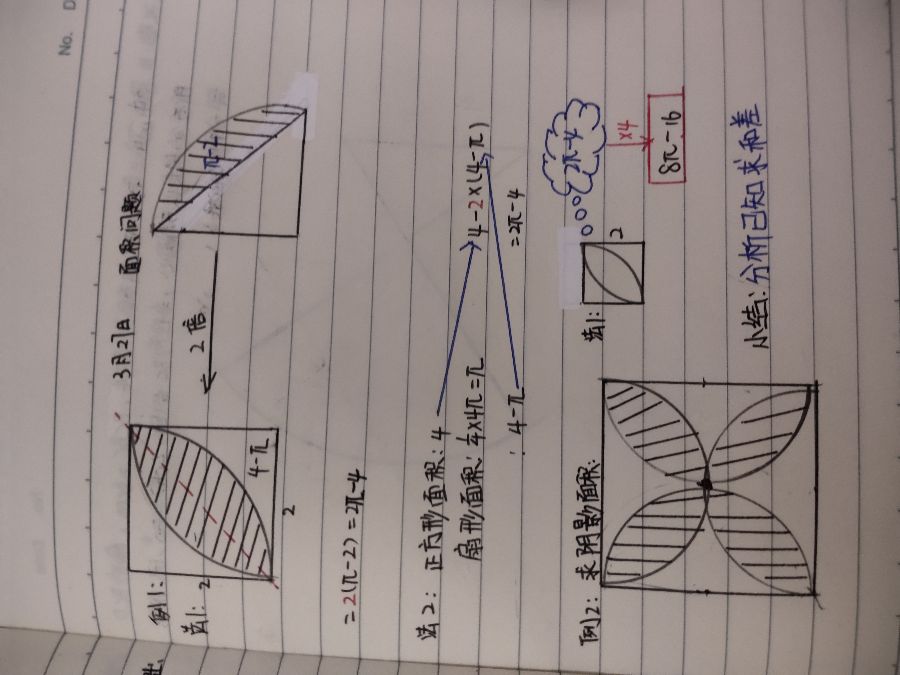 No.
D
3月21日 面积问题.
例1:
法1:
2
4-π
2
2倍
π-2
=2(π-2)=2π-4
法2: 正方形面积: 4
扇形面积: 1/4×4π=π
∴ 4-π
4-2×(4-π)
=2π-4
例2: 求阴影面积:
法1:
2
2π-4
×4
8π-16
小结: 分析已知求和差